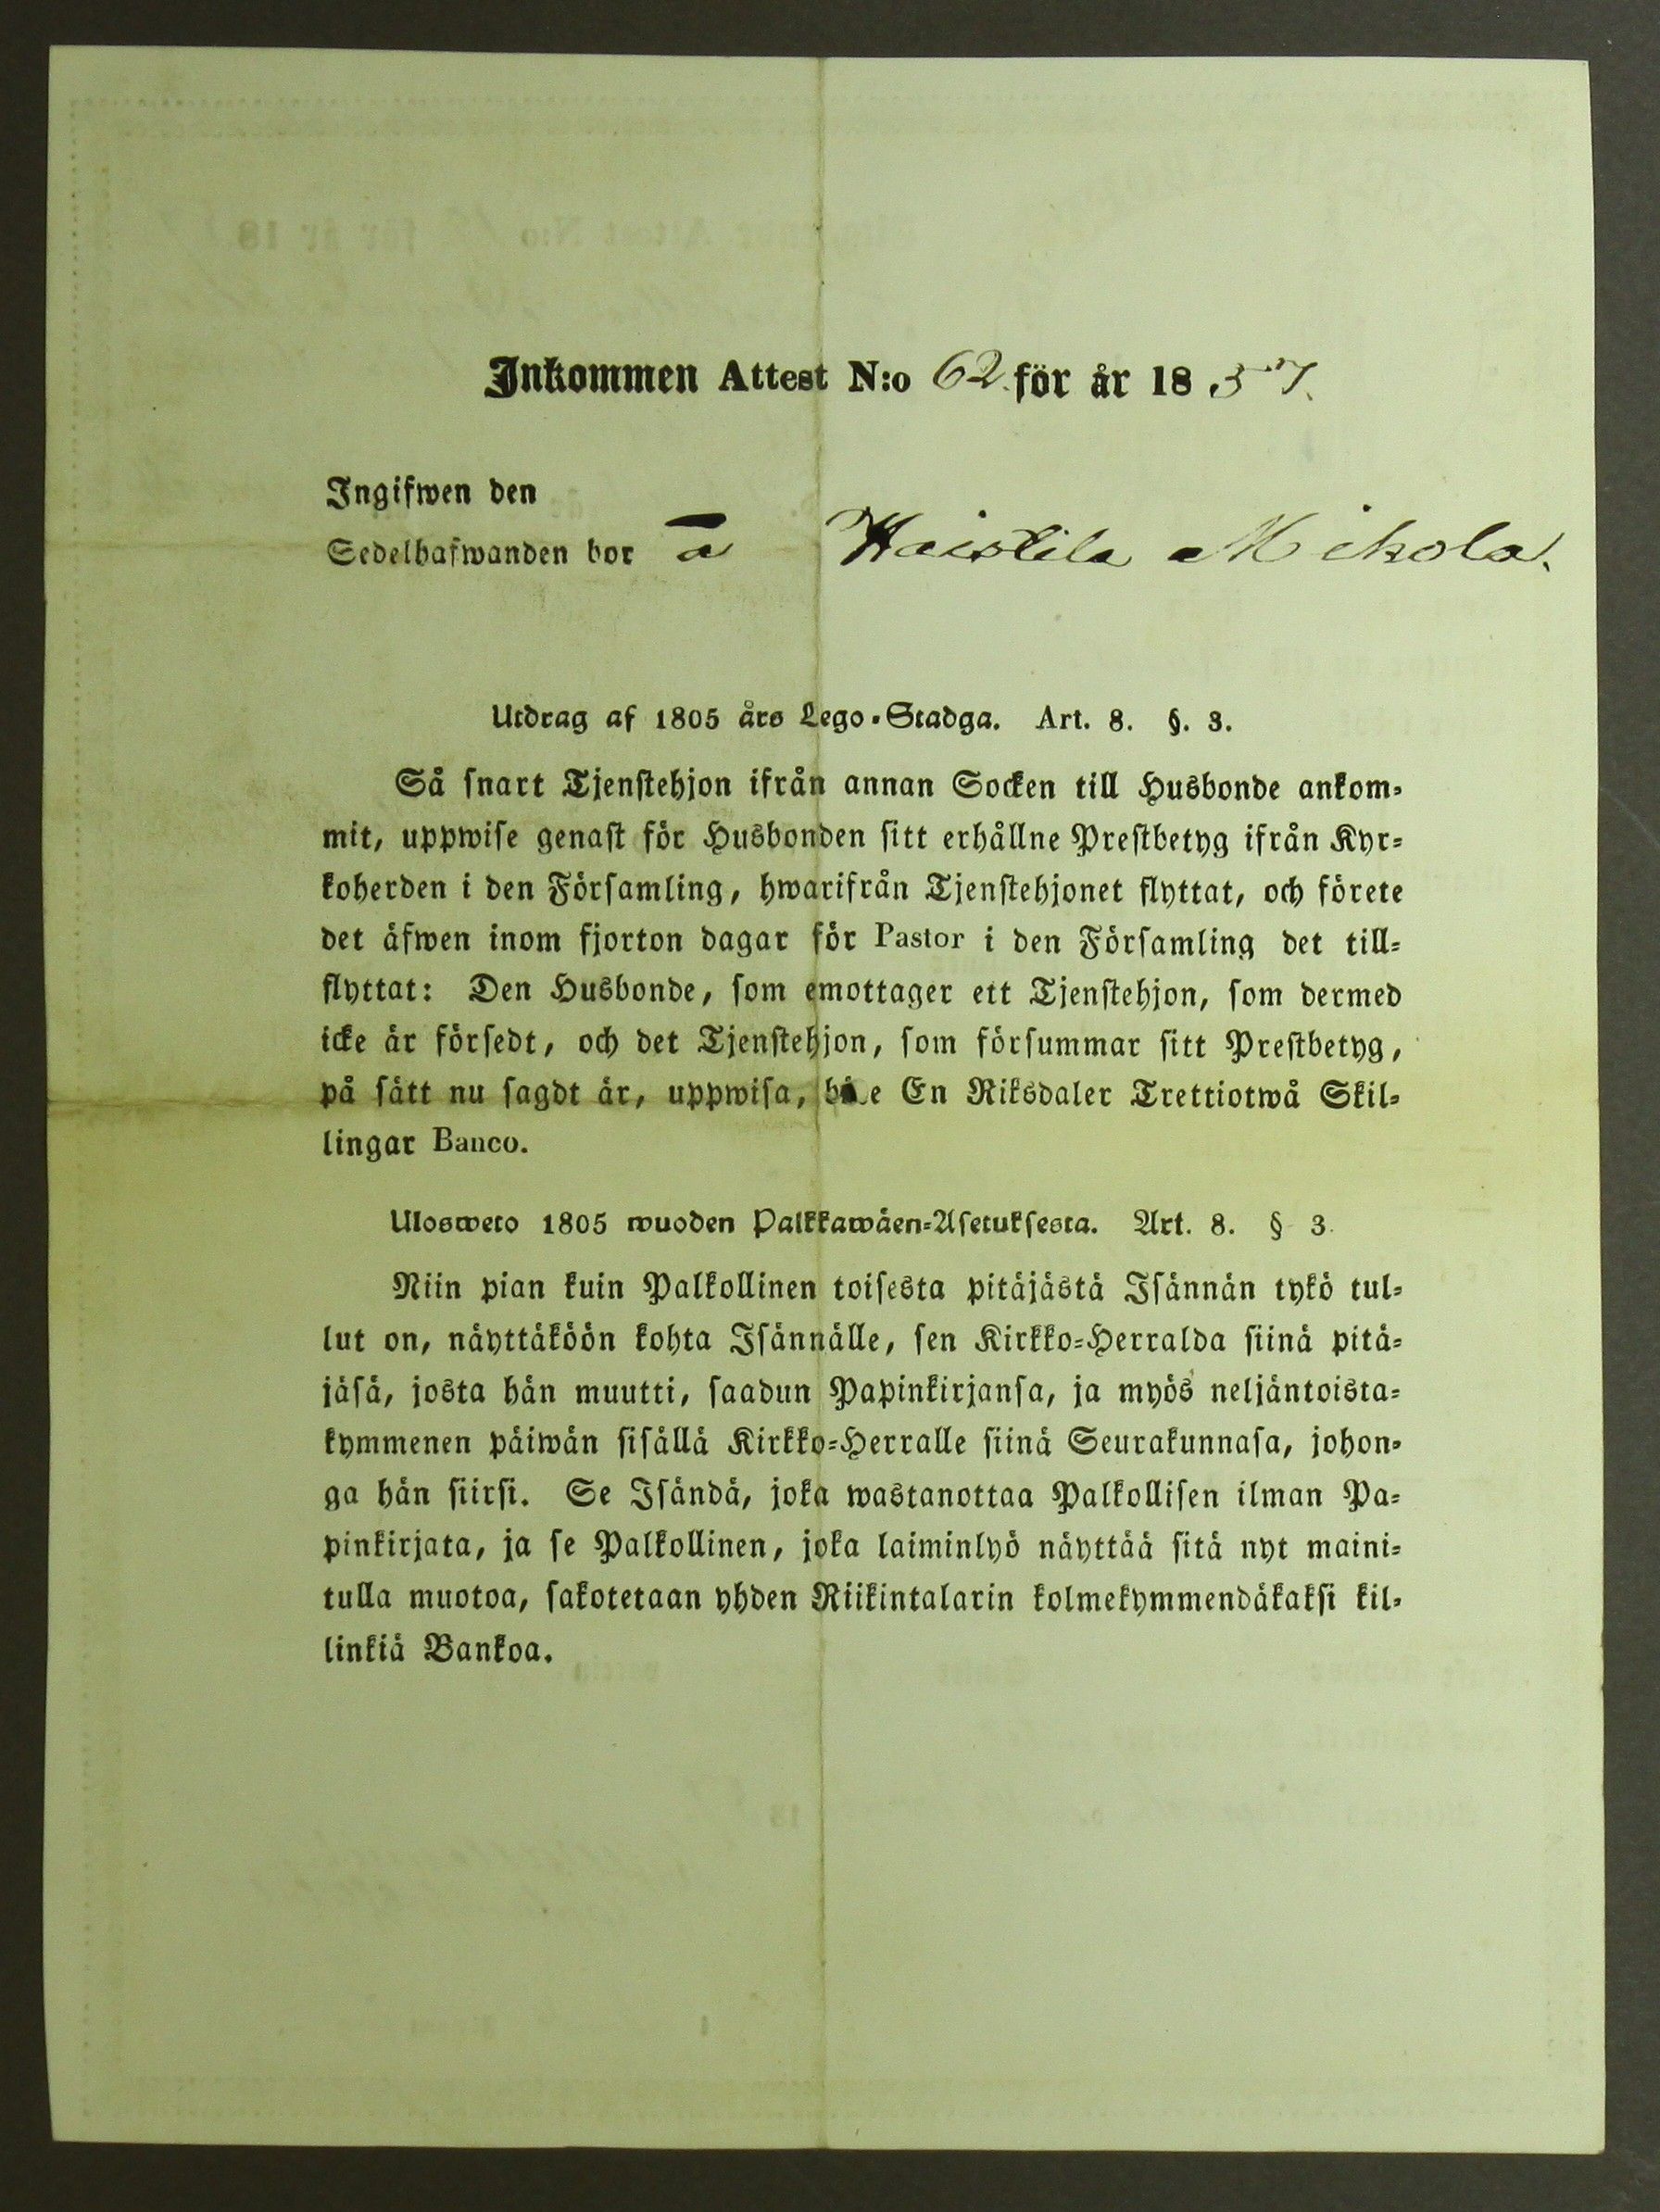 Inkommen Attest N:o 62. för år 1857.
Ingifwen den
Sedelhafwanden bor å Haistila Mikola.
Utdrag af 1805 års Lego-Stadga. Art. 8. §. 3.
Så snart Tjenstehjon ifrån annan Socken till Husbonde ankom-
mit, uppwise genast för Husbonden sitt erhållne Prestbetyg ifrån Kyr-
koherden i den Församling, hwarifrån Tjenstehjonet flyttat, och förete
det äfwen inom fjorton dagar för Pastor i den Församling det till-
flyttat: Den Husbonde, som emottager ett Tjenstehjon, som dermed
icke är försedt, och det Tjenstehjon, som försummar sitt Prestbetyg,
på sätt nu sagdt är, uppwisa, En Riksdaler Trettiotwå Skil-
lingar Banco.
Ulosweto 1805 wuoden Palkkawäen-Asetuksesta. Art. 8. § 3.
Niin pian kuin Palkollinen toisesta pitäjästä Isännän tykö tul-
lut on, näyttäköön kohta Isännälle, sen Kirkko-Herralda siinä pitä-
jäsä, josta hän muutti, saadun Papinkirjansa, ja myös neljäntoista-
kymmenen päiwän sisällä Kirkko-Herralle siinä Seurakunnasa, johon-
ga hän siirsi. Se Isändä, joka wastanottaa Palkollisen ilman Pa-
pinkirjata, ja se Palkollinen, joka laiminlyö näyttää sitä nyt maini-
tulla muotoa, sakotetaan yhden Riikintalarin kolmekymmendäkaksi kil-
linkiä Bankoa.